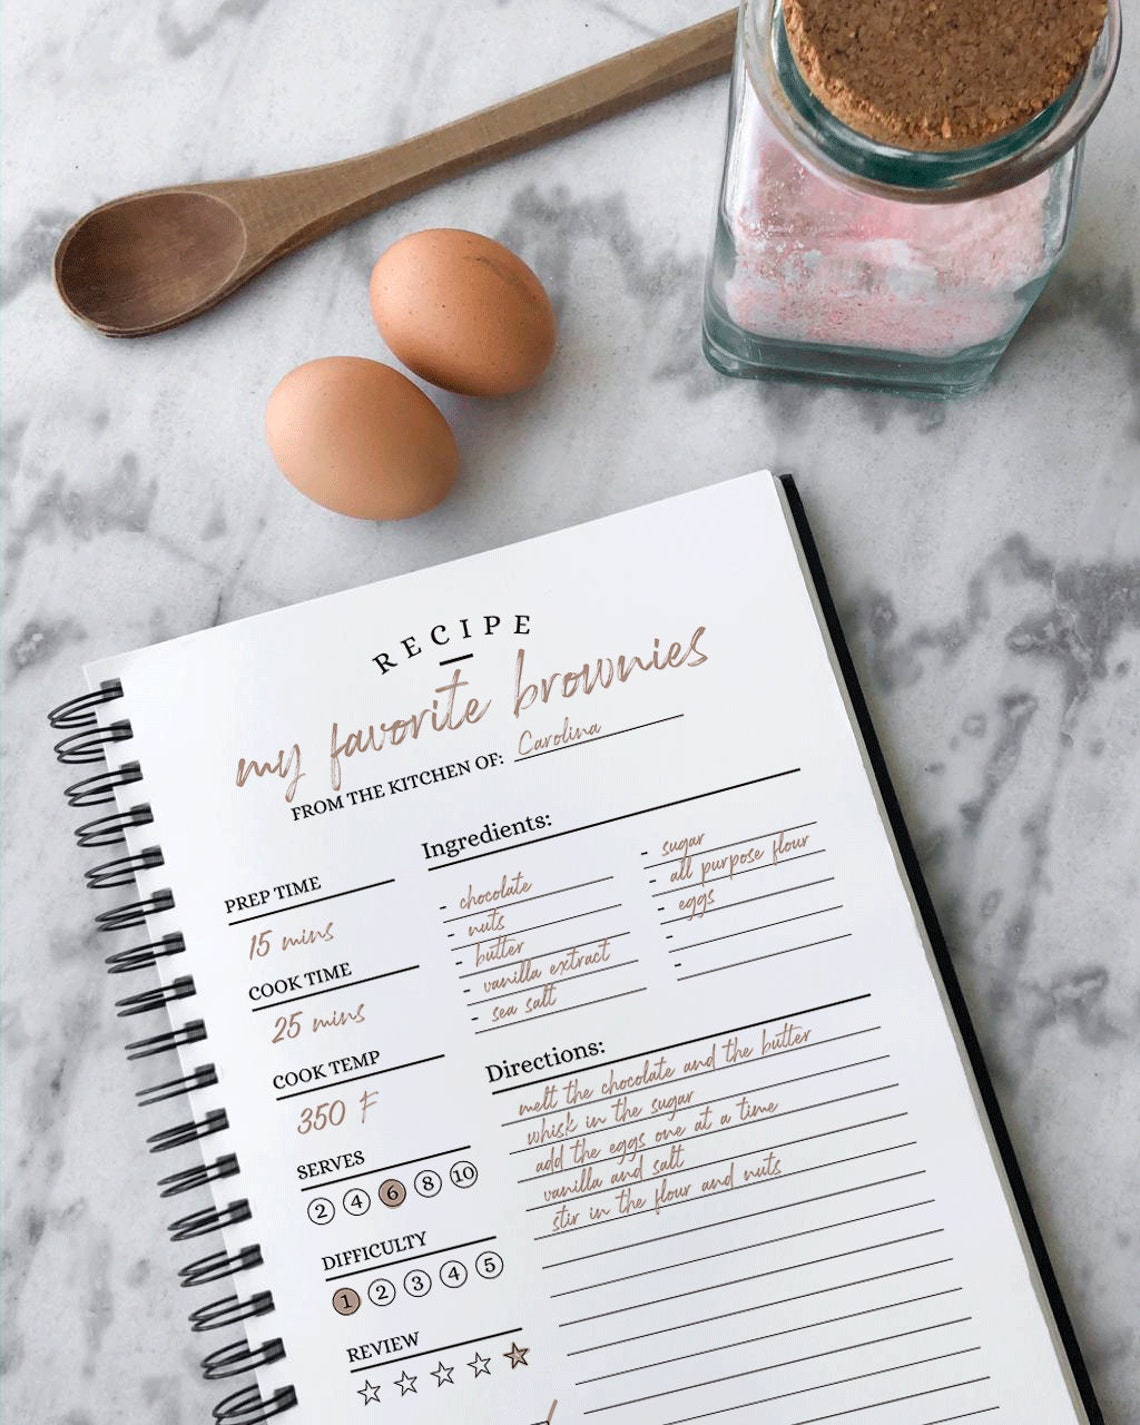 RECIPE
my favorite brownies
FROM THE KITCHEN OF: Carolina
PREP TIME
15 mins
COOK TIME
25 mins
COOK TEMP
350 F
SERVES
2 4 6 8 10
DIFFICULTY
1 2 3 4 5
REVIEW
Ingredients:
- chocolate
- nuts
- butter
- vanilla extract
- sea salt
- sugar
- all purpose flour
- eggs
-
-
Directions:
melt the chocolate and the butter
whisk in the sugar
add the eggs one at a time
vanilla and salt
stir in the flour and nuts